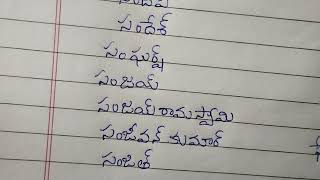 సందేశ్
సంఘర్ష్
సంజయ్
సంజయ్ రామస్వామి
సంజీవన్ కుమార్
సంజిత్